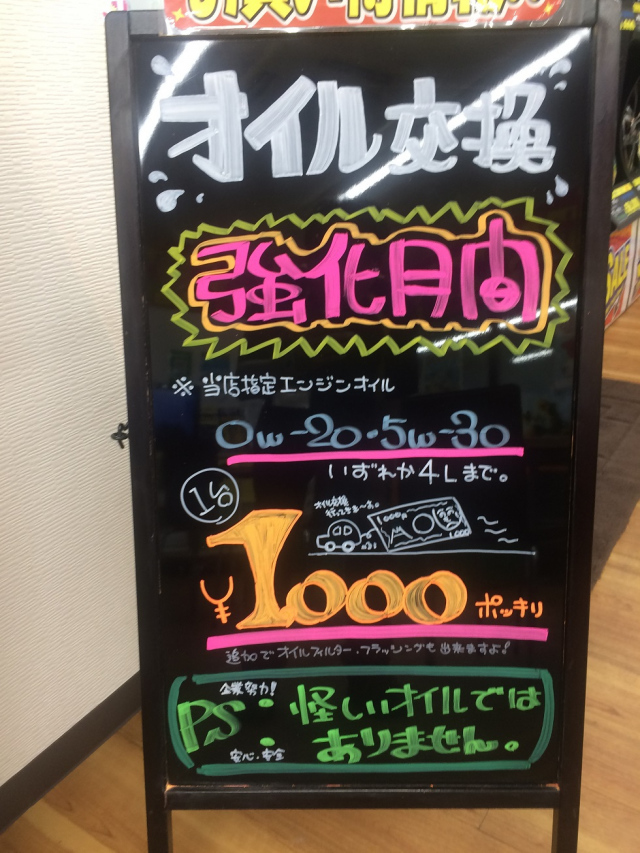 お買い得情報!!
オイル交換
強化月間
※当店指定エンジンオイル
0w-20・5w-30
いずれか4Lまで。
オイル交換
行ってきま〜す。
1台
1000
1,000
¥1,000ポッキリ
追加でオイルフィルター・フラッシングも出来ますよ!
企業努力!
PS:怪しいオイルでは
ありません。
安心・安全
SALE